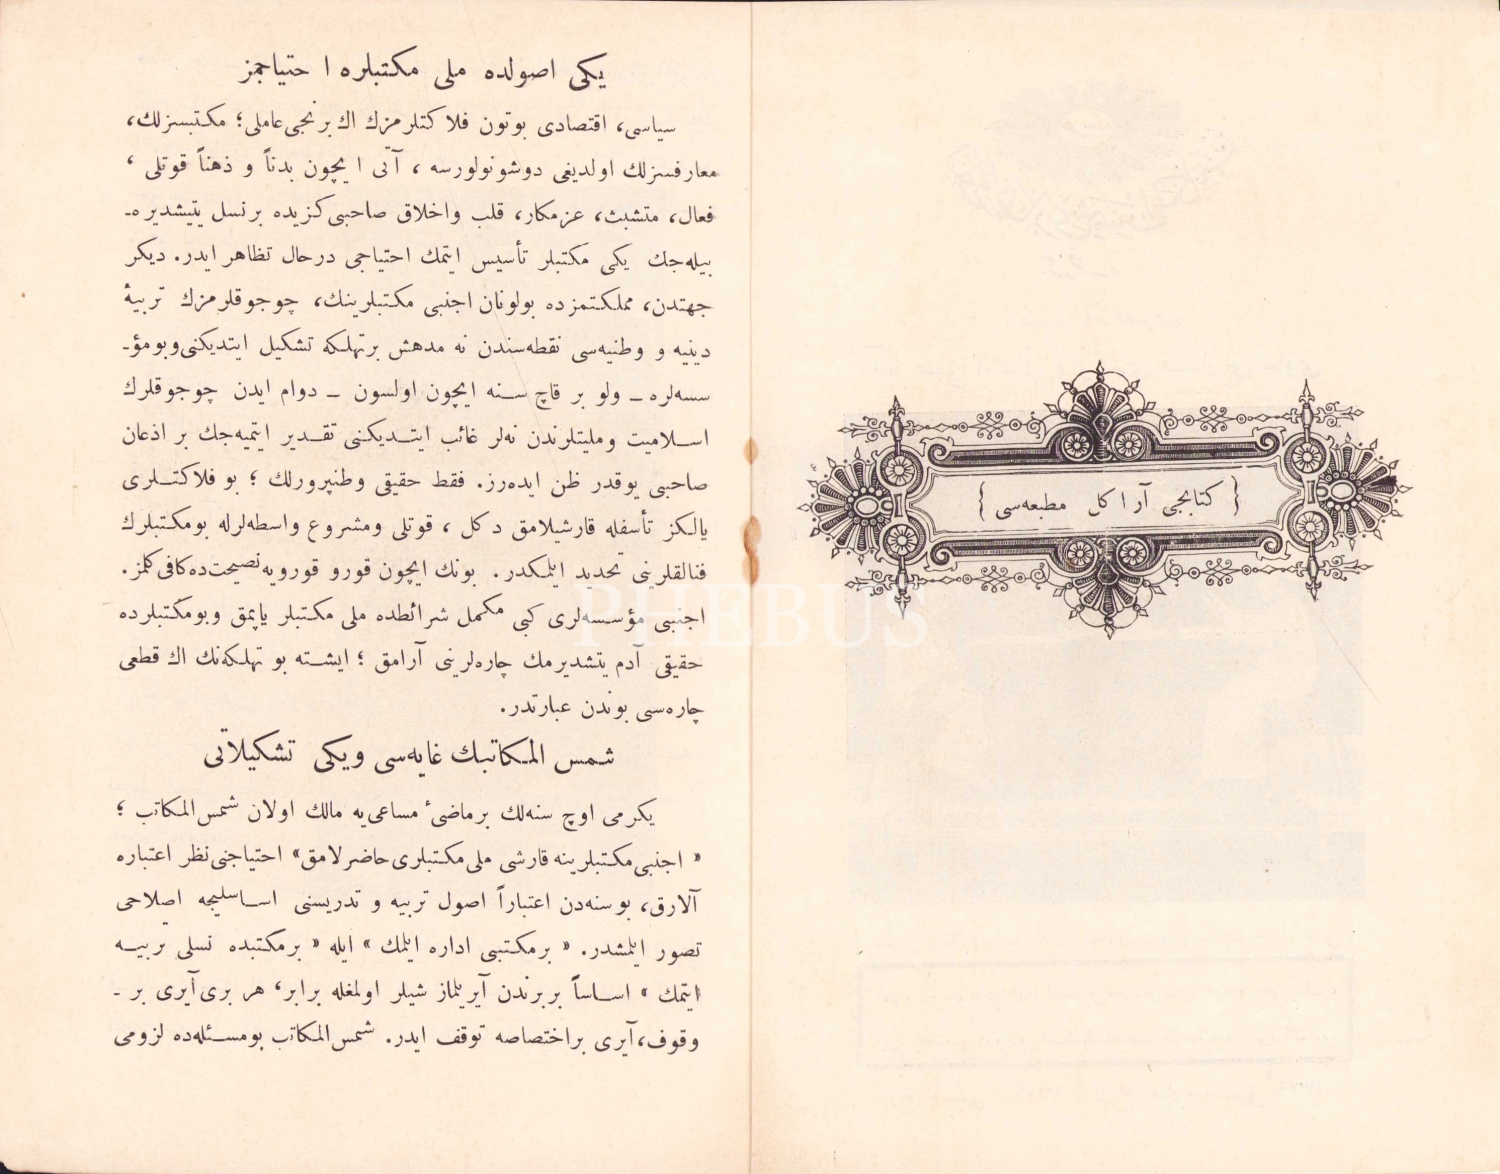 { كتابجى آراكل مطبعه‌سى }
يكى اصولده ملى مكتبلره احتياجمز
سياسى، اقتصادى بوتون فلاكتلرمزك اك برنجى عاملى؛ مكتبسزلك،
معارفسزلك اولديغى دوشونولورسه ، آتى ايچون بدناً و ذهناً قوتلى ،
فعال، متشبث، عزمكار، قلب واخلاق صاحبى كزيده برنسل يتيشديره‌ـ
بيله‌جك يكى مكتبلر تأسيس ايتمك احتياجى درحال تظاهر ايدر. ديكر
جهتدن، مملكتمزده بولونان اجنبى مكتبلرينك، چوجوقلرمزك تربيهٔ
دينيه و وطنيه‌سى نقطه‌سندن نه مدهش برتهلكه تشكيل ايتديكنى وبومؤـ
سسه‌لره ـ ولو بر قاچ سنه ايچون اولسون ـ دوام ايدن چوجوقلرك
اسلاميت ومليتلرندن نه‌لر غائب ايتديكنى تقدير ايتميه‌جك بر اذعان
صاحبى يوقدر ظن ايده‌رز. فقط حقيقى وطنپرورلك ؛ بو فلاكتلرى
يالكز تأسفله قارشيلامق دكل ، قوتلى ومشروع واسطه‌لرله بومكتبلرك
فنالقلرينى تحديد ايتمكدر. بونك ايچون قورو قورويه نصيحت‌ده كافى كلمز.
اجنبى مؤسسه‌لرى كبى مكمل شرائطده ملى مكتبلر ياپمق وبومكتبلرده
حقيقى آدم يتشديرمك چاره‌لرينى آرامق ؛ ايشته بو تهلكه‌نك اك قطعى
چاره‌سى بوندن عبارتدر.
شمس المكاتبك غايه‌سى ويكى تشكيلاتى
يكرمى اوچ سنه‌لك برماضىٔ مساعى‌يه مالك اولان شمس‌المكاتب ؛
« اجنبى مكتبلرينه قارشى ملى مكتبلرى حاضرلامق» احتياجنى نظر اعتباره
آلارق، بوسنه‌دن اعتباراً اصول تربيه و تدريسنى اساسليجه اصلاحى
تصور ايتمشدر. « برمكتبى اداره ايتمك » ايله « برمكتبده نسلى تربيه
ايتمك » اساساً بربرندن آيريلماز شيلر اولمغله برابر، هر برى آيرى بر ـ
وقوف، آيرى براختصاصه توقف ايدر. شمس‌المكاتب بومسئله‌ده لزومى
PHEBUS